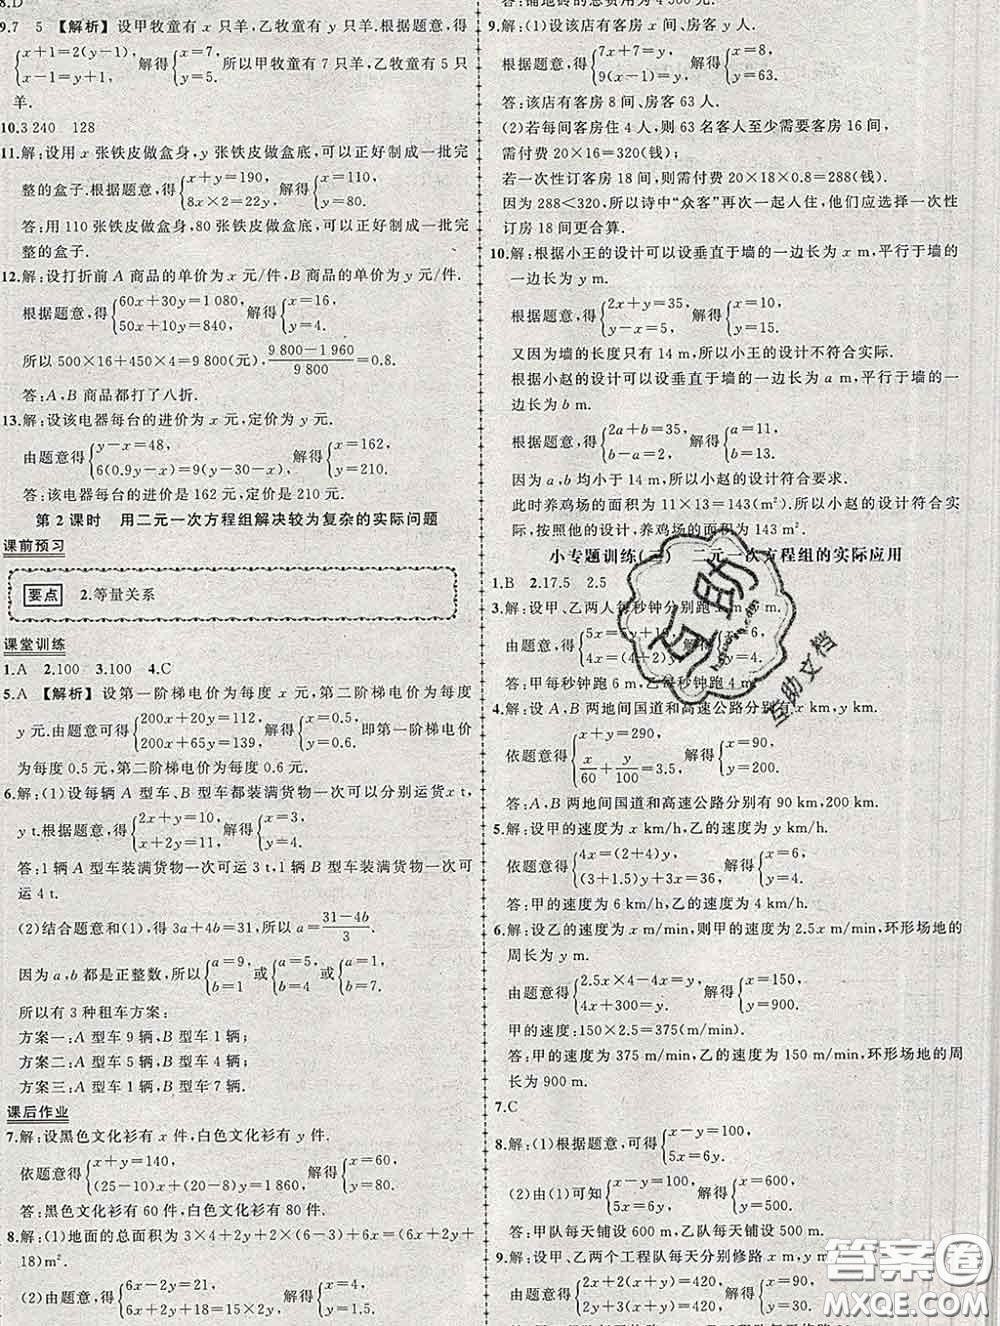 8.D
9.7 5 【解析】设甲牧童有 x 只羊,乙牧童有 y 只羊.根据题意,得
{x+1=2(y-1), x-1=y+1, 解得{x=7, y=5. 所以甲牧童有 7 只羊,乙牧童有 5 只
羊.
10.3 240 128
11.解:设用 x 张铁皮做盒身,y 张铁皮做盒底,可以正好制成一批完
整的盒子.根据题意,得{x+y=190, 8x×2=22y, 解得{x=110, y=80.
答:用 110 张铁皮做盒身,80 张铁皮做盒底,可以正好制成一批完
整的盒子.
12.解:设打折前 A 商品的单价为 x 元/件,B 商品的单价为 y 元/件.
根据题意,得{60x+30y=1 080, 50x+10y=840, 解得{x=16, y=4.
所以 500×16+450×4=9 800(元),(9 800-1 960)/9 800=0.8.
答:A,B 商品都打了八折.
13.解:设该电器每台的进价为 x 元,定价为 y 元.
由题意得{y-x=48, 6(0.9y-x)=9(y-30-x), 解得{x=162, y=210.
答:该电器每台的进价是 162 元,定价是 210 元.
第 2 课时 用二元一次方程组解决较为复杂的实际问题
课前预习
要点 2.等量关系
课堂训练
1.A 2.100 3.100 4.C
5.A 【解析】设第一阶梯电价为每度 x 元,第二阶梯电价为每度
y 元.由题意可得{200x+20y=112, 200x+65y=139, 解得{x=0.5, y=0.6, 即第一阶梯电价
为每度 0.5 元,第二阶梯电价为每度 0.6 元.
6.解:(1)设每辆 A 型车、B 型车都装满货物一次可以分别运货 x t,
y t.根据题意,得{2x+y=10, x+2y=11, 解得{x=3, y=4.
答:1 辆 A 型车装满货物一次可运 3 t,1 辆 B 型车装满货物一次可
运 4 t.
(2)结合题意和(1),得 3a+4b=31,所以 a=(31-4b)/3.
因为 a,b 都是正整数,所以{a=9, b=1 或{a=5, b=4 或{a=1, b=7.
所以有 3 种租车方案:
方案一:A 型车 9 辆,B 型车 1 辆;
方案二:A 型车 5 辆,B 型车 4 辆;
方案三:A 型车 1 辆,B 型车 7 辆.
课后作业
7.解:设黑色文化衫有 x 件,白色文化衫有 y 件.
依题意得{x+y=140, (25-10)x+(20-8)y=1 860, 解得{x=60, y=80.
答:黑色文化衫有 60 件,白色文化衫有 80 件.
8.解:(1)地面的总面积为 3×4+2y+2×(6-3)+6x=(6x+2y+
18)m².
(2)由题意,得{6x-2y=21, 6x+2y+18=15×2y, 解得{x=4, y=1.5.
9.解:(1)设该店有客房 x 间,房客 y 人.
根据题意,得{7x+7=y, 9(x-1)=y, 解得{x=8, y=63.
答:该店有客房 8 间、房客 63 人.
(2)若每间客房住 4 人,则 63 名客人至少需要客房 16 间,
需付费 20×16=320(钱);
若一次性订客房 18 间,则需付费 20×18×0.8=288(钱).
因为 288<320,所以诗中“众客”再次一起入住,他们应选择一次性
订房 18 间更合算.
10.解:根据小王的设计可以设垂直于墙的一边长为 x m,平行于墙的
一边长为 y m.
根据题意,得{2x+y=35, y-x=5, 解得{x=10, y=15.
又因为墙的长度只有 14 m,所以小王的设计不符合实际.
根据小赵的设计可以设垂直于墙的一边长为 a m,平行于墙的一边
长为 b m.
根据题意,得{2a+b=35, b-a=2, 解得{a=11, b=13.
因为均小于 14 m,所以小赵的设计符合要求.
此时养鸡场的面积为 11×13=143(m²).
所以,按照他的设计,养鸡场的面积为 143 m².
小专题训练 二元一次方程组的实际应用
1.B 2.17.5 2.5
3.解:设甲、乙两人每秒钟分别跑 x m,y m.
由题意,得{5x=5y+10, 4x=(4+2)y,
答:甲每秒钟跑 6 m,乙每秒钟跑 4 m.
4.解:设 A,B 两地间国道和高速公路分别有 x km,y km.
依题意得{x+y=290, x/60+y/100=3.5, 解得{x=90, y=200.
答:A,B 两地间国道和高速公路分别有 90 km,200 km.
5.解:设甲的速度为 x km/h,乙的速度为 y km/h.
依题意得{4x=(2+4)y, (3+1.5)x+3y=39, 解得{x=6, y=4.
答:甲的速度为 6 km/h,乙的速度为 4 km/h.
6.解:设乙的速度为 x m/min,则甲的速度为 2.5x m/min,环形场地的
周长为 y m.
由题意得{2.5x×4-4x=y, 4x+300=y, 解得{x=150, y=900.
甲的速度:150×2.5=375(m/min).
答:甲的速度为 375 m/min,乙的速度为 150 m/min,环形场地的周
长为 900 m.
7.C
8.解:(1)根据题意,可得{x-y=100, 5x=6y.
(2)由(1)可知{x-y=100, 5x=6y, 解得{x=600, y=500.
答:甲队每天铺设 600 m,乙队每天铺设 500 m.
9.解:设甲、乙两个工程队每天分别修路 x m,y m.
由题意得{2x+2(x+y)=420, 2y+3(x+y)=420, 解得
互助
互助文档
答案圈
MXQE.COM